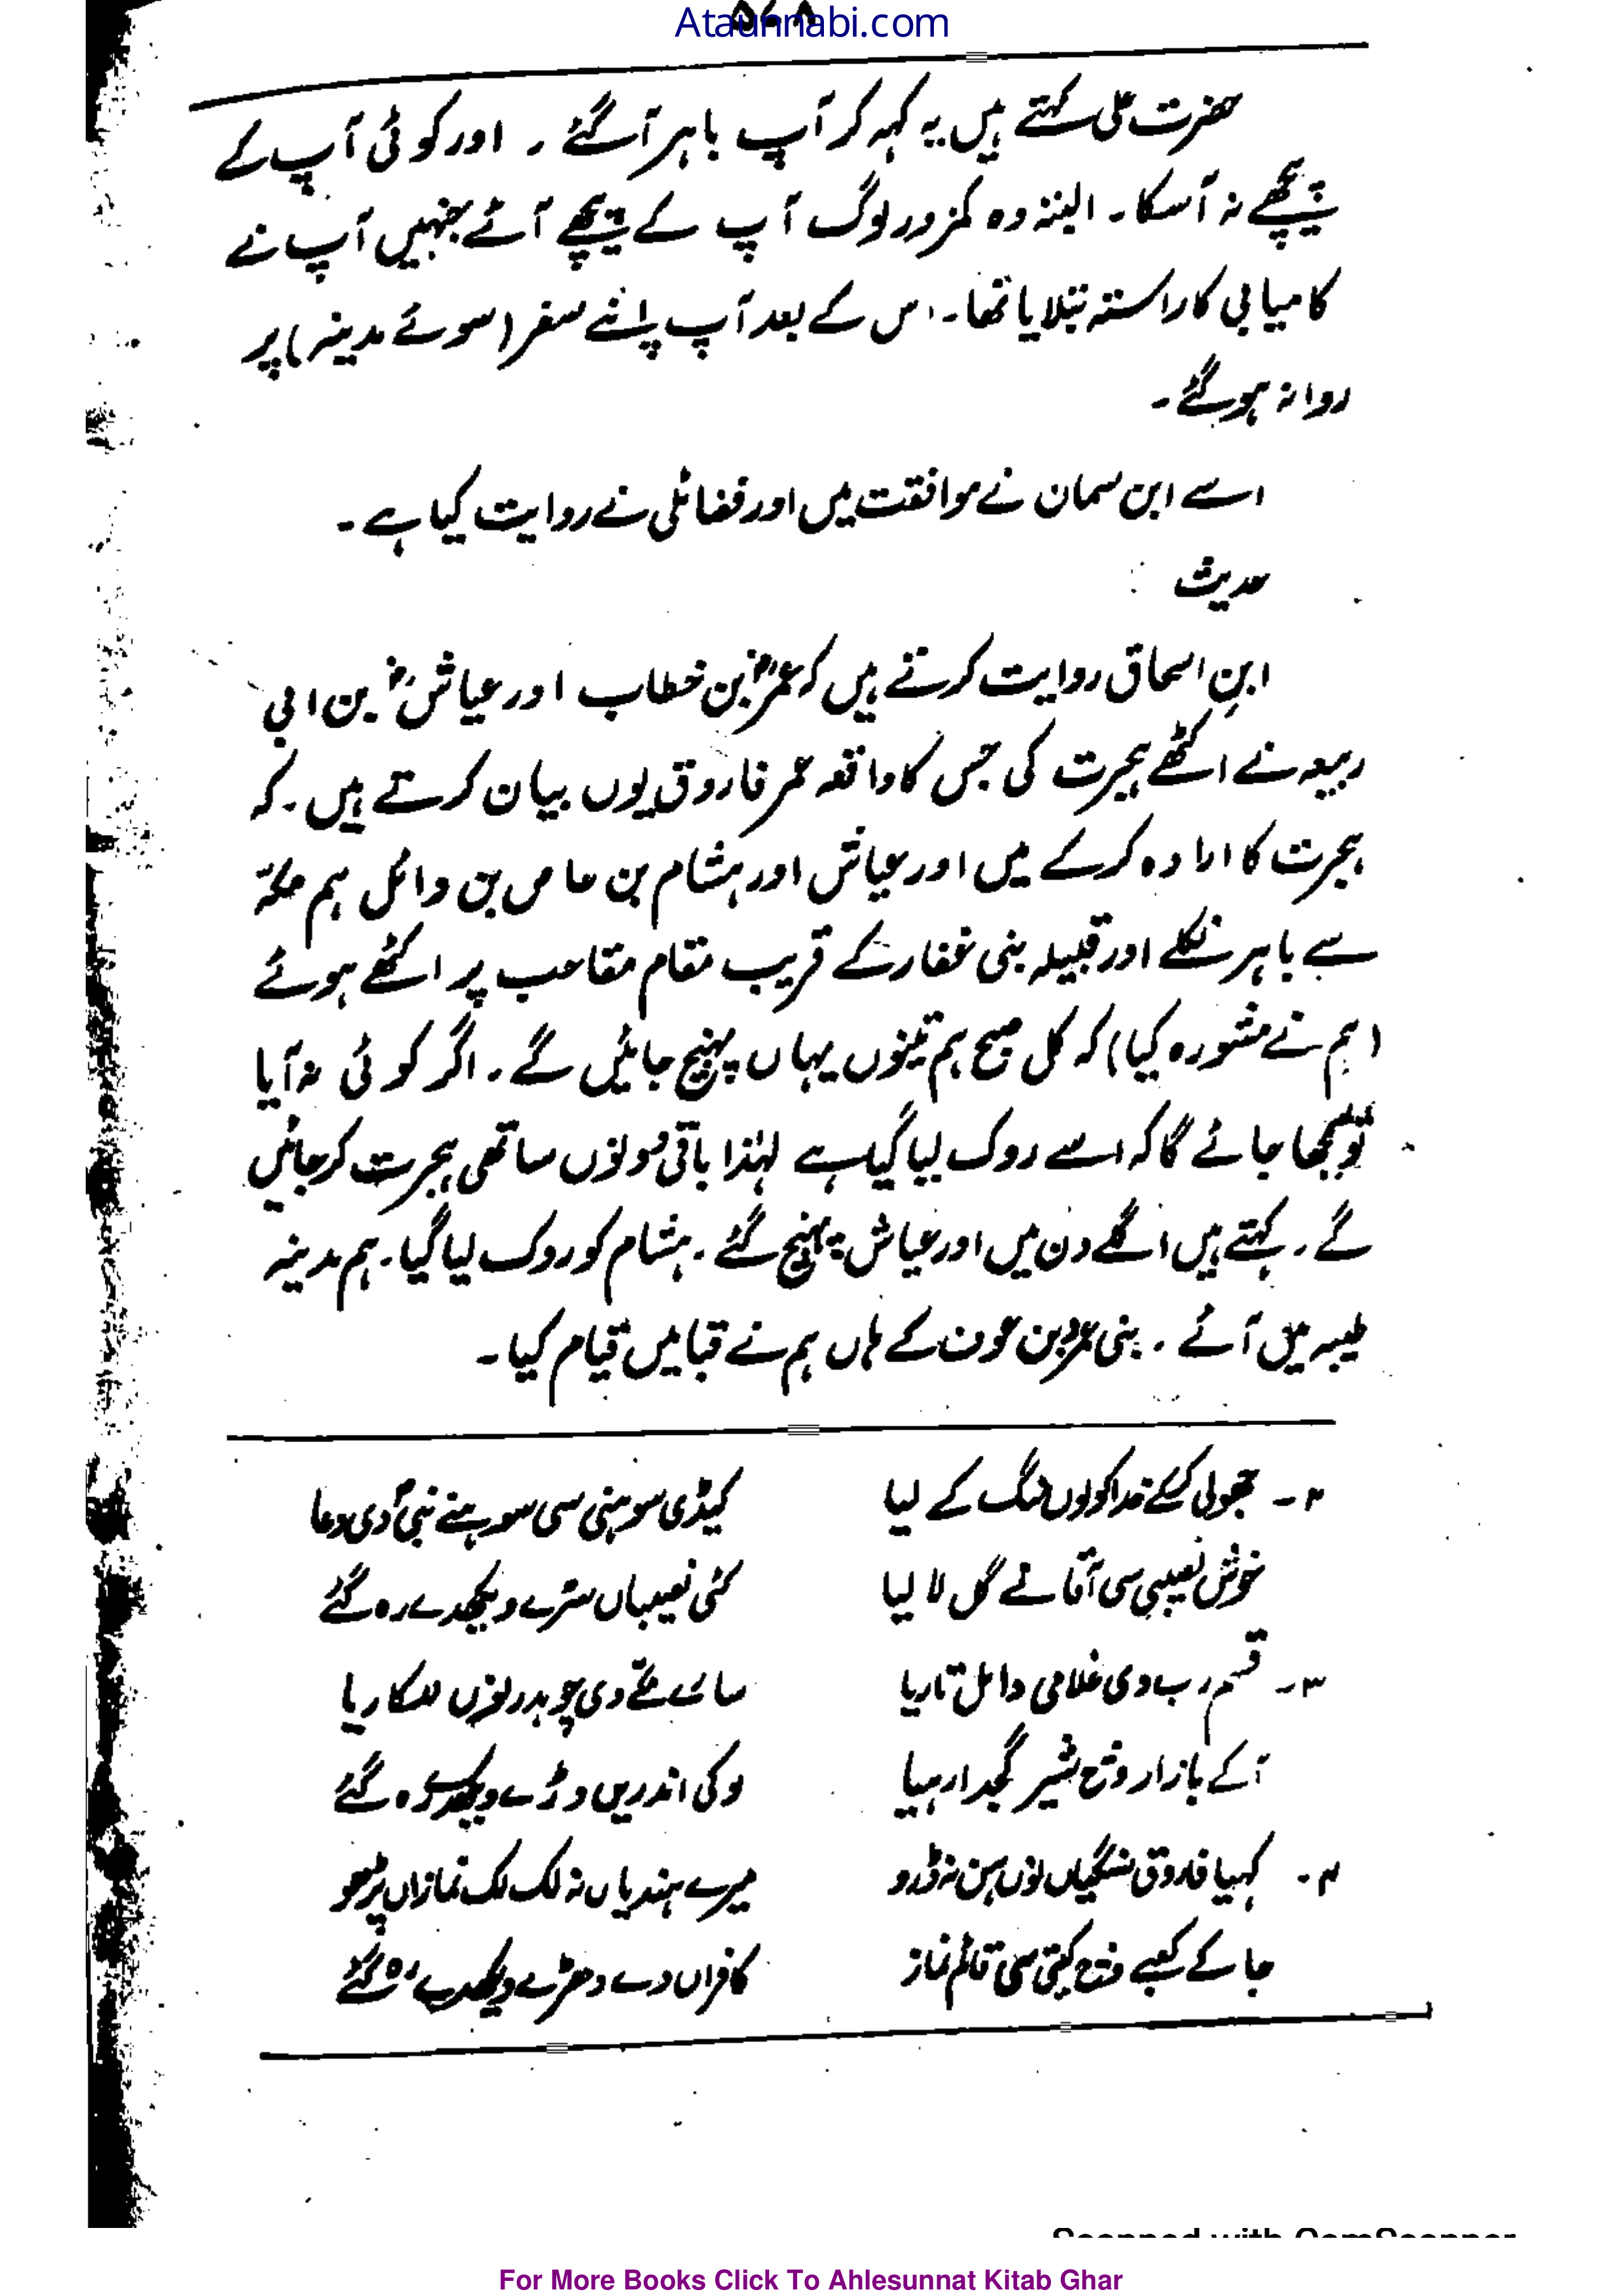 Ataunnabi.com
۵۶۸
حضرت علی کہتے ہیں یہ کہہ کر آپ باہر آگئے ۔ اور کوئی آپ کے
پیچھے نہ آسکا۔ البتہ وہ کمزور لوگ آپ کے پیچھے آئے جنہیں آپ نے
کامیابی کا راستہ بتلایا تھا۔ اس کے بعد آپ اپنے سفر (سوئے مدینہ) پر
روانہ ہوگئے۔
اسے ابن سمان نے موافقت میں اور فضائلی نے روایت کیا ہے۔
حدیث :
ابنِ اسحاق روایت کرتے ہیں کہ عمرؓ بن خطاب اور عیاشؓ بن ابی
ربیعہ نے اکٹھے ہجرت کی جس کا واقعہ عمر فاروق یوں بیان کرتے ہیں ۔ کہ
ہجرت کا ارادہ کرکے میں اور عیاش اور ہشام بن عاص بن وائل ہم مکہ
سے باہر نکلے اور قبیلہ بنی غفار کے قریب مقام مقاصب پر اکٹھے ہوئے
(ہم نے مشورہ کیا) کہ کل صبح ہم تینوں یہاں پہنچ جائیں گے۔ اگر کوئی نہ آیا
تو سمجھا جائے گا کہ اسے روک لیا گیا ہے لہٰذا باقی دونوں ساتھی ہجرت کر جائیں
گے۔ کہتے ہیں اگلے دن میں اور عیاش پہنچ گئے۔ ہشام کو روک لیا گیا۔ ہم مدینہ
طیبہ میں آئے ۔ بنی عمرو بن عون کے ہاں ہم نے قبا میں قیام کیا۔
۲۔ جھولی کرکے خدا کولوں منگ کے لیا کیڈی سوہنی سی سوہنے نبی دی دعا
خوش نصیبی سی آقا نے گل لا لیا کئی نصیباں سڑے ویکھدے رہ گئے
۳۔ قسم رب دی غلامی دا مل تاریا سارے مکے دی چوہدر نوں للکاریا
آکے بازار وچ شیر گجدا رہیا لوکی اندریں وڑے ویکھدے رہ گئے
۴۔ کہیا فاروق سنگیاں نوں ہن نہ ڈرو میرے ہندیاں نہ لک لک نمازاں پڑھو
جا کے کعبے وچ کیتی سی قائم نماز کافراں دے دھڑے ویکھدے رہ گئے
Scanned with CamScanner
For More Books Click To Ahlesunnat Kitab Ghar